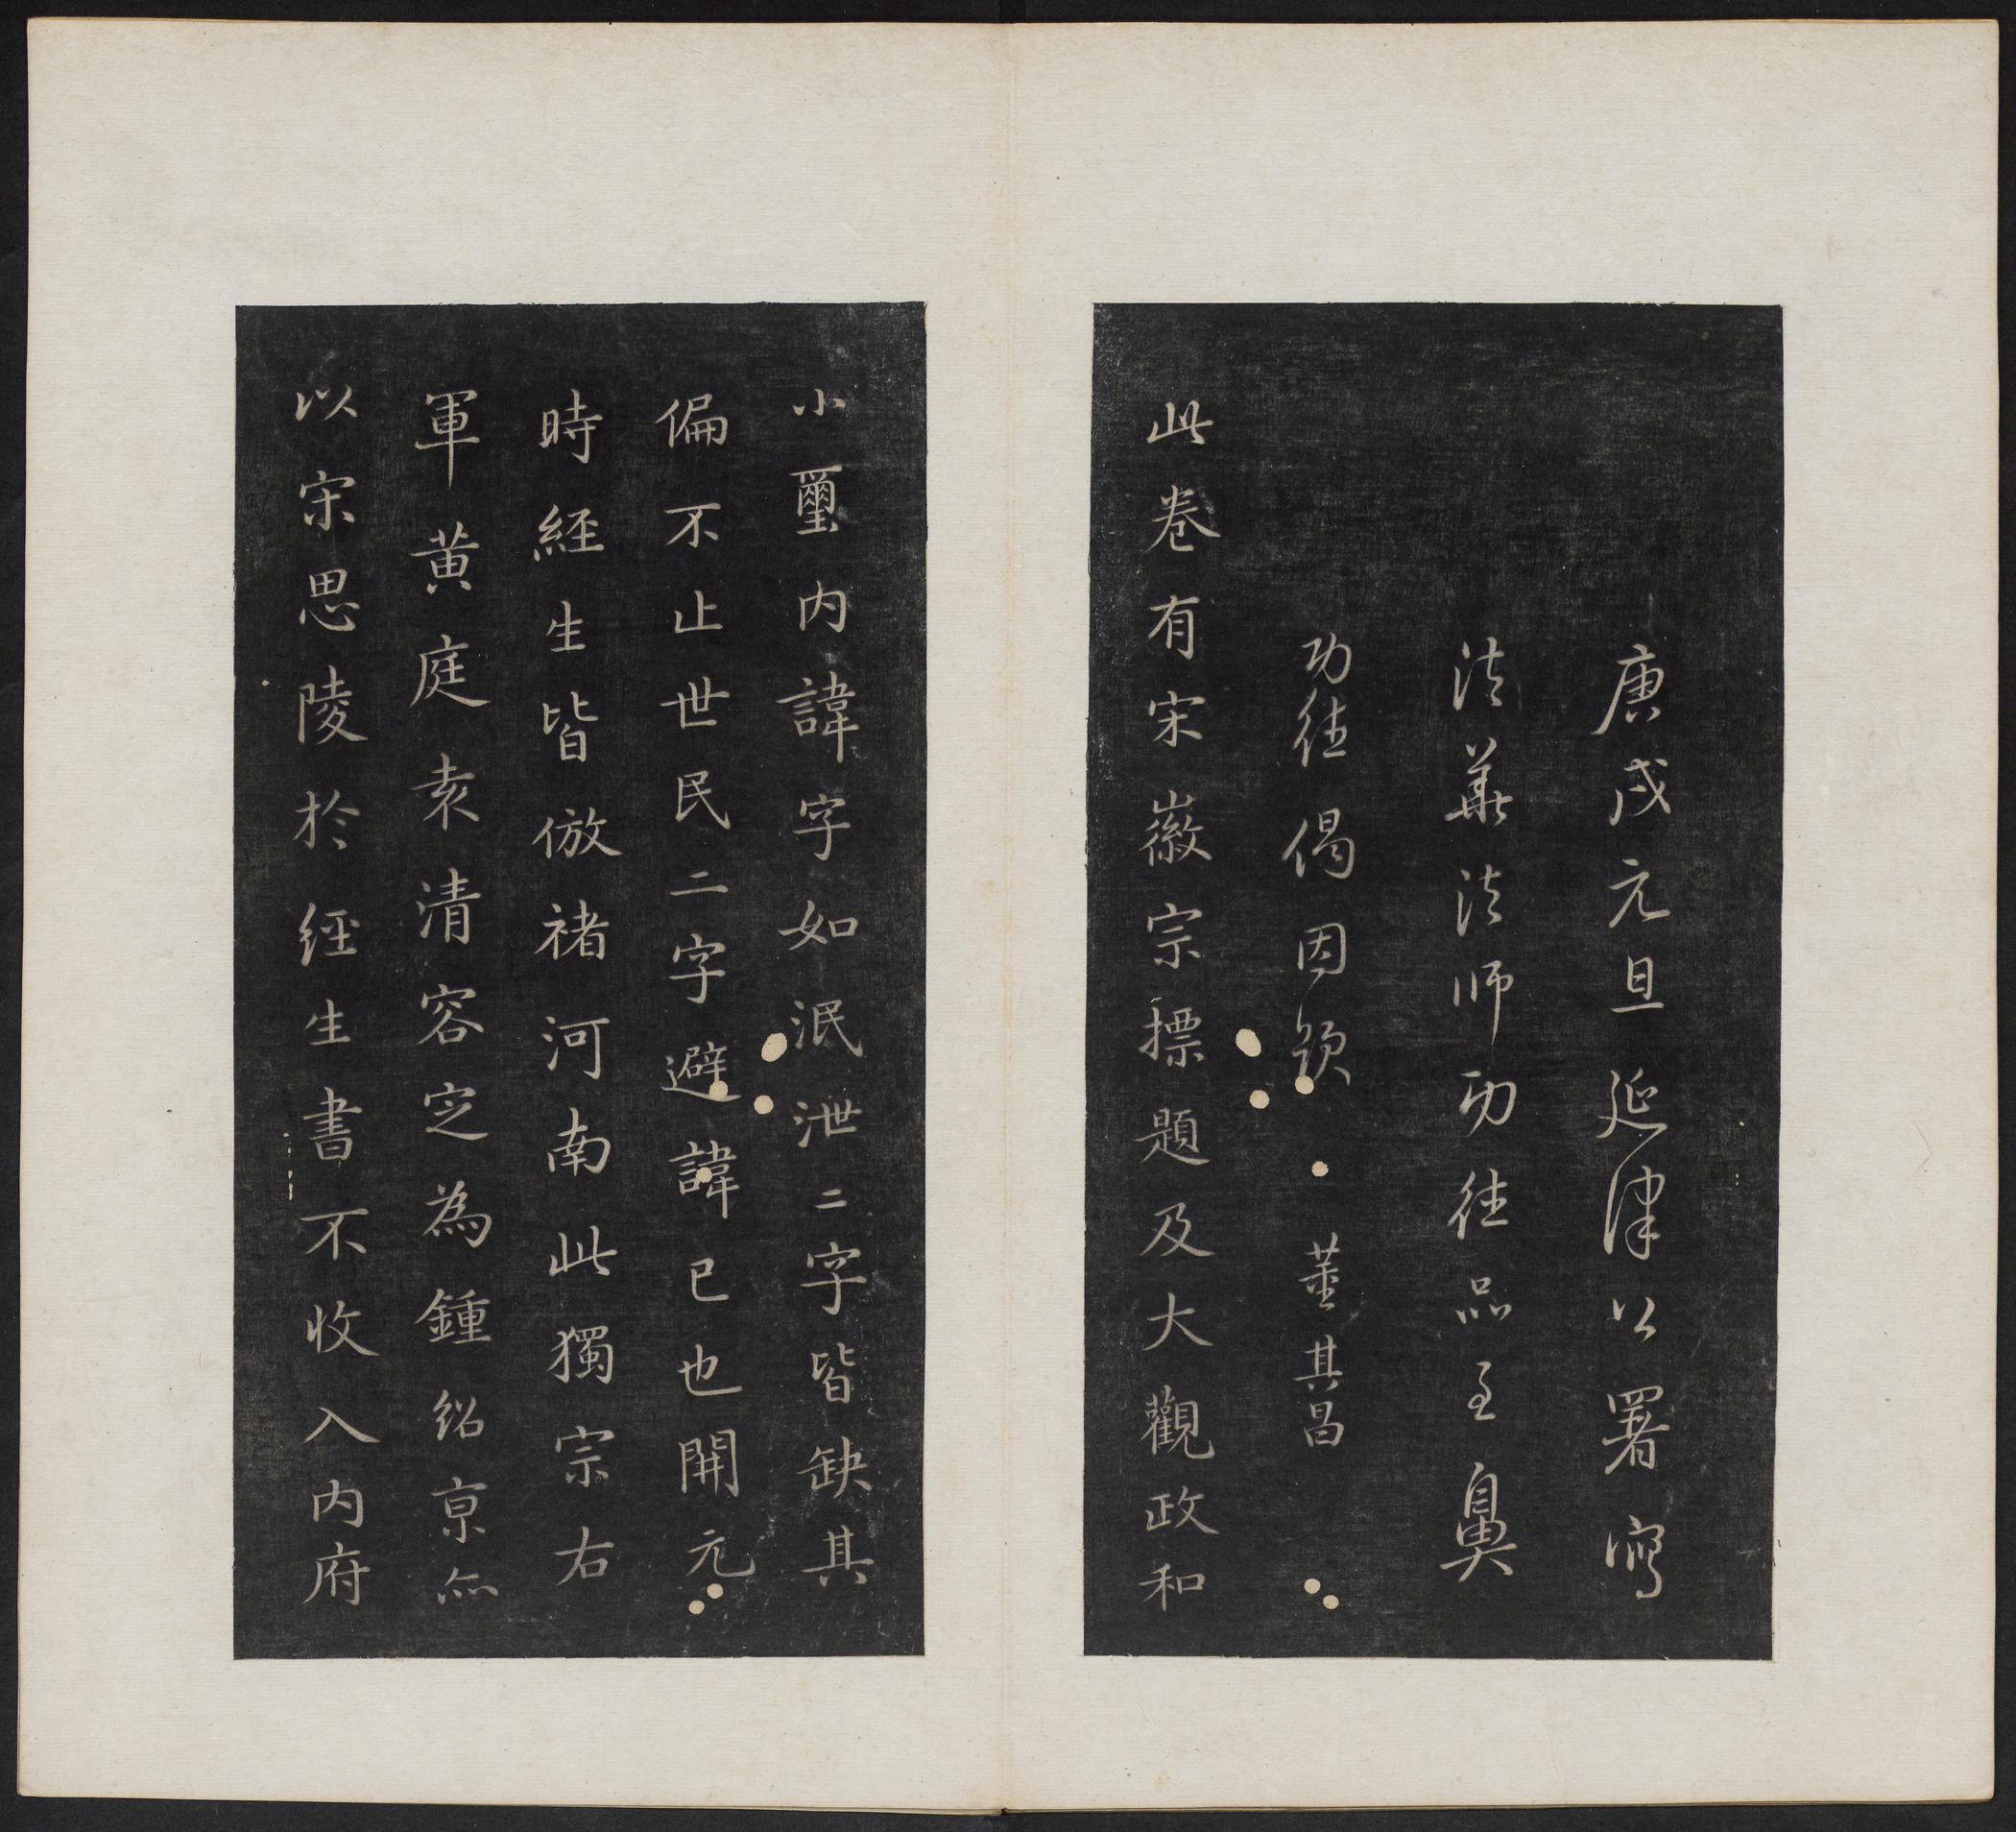 庚戌元旦延津公署寫
法華法師功德品至鼻
功德偈因題 董其昌
此卷有宋徽宗標題及大觀政和
小璽内諱字如泯泄二字皆缺其
偏不止世民二字避諱已也開元
時經生皆倣褚河南此獨宗右
軍黄庭袁清容定為鍾紹京亦
以宋思陵於經生書不收入内府